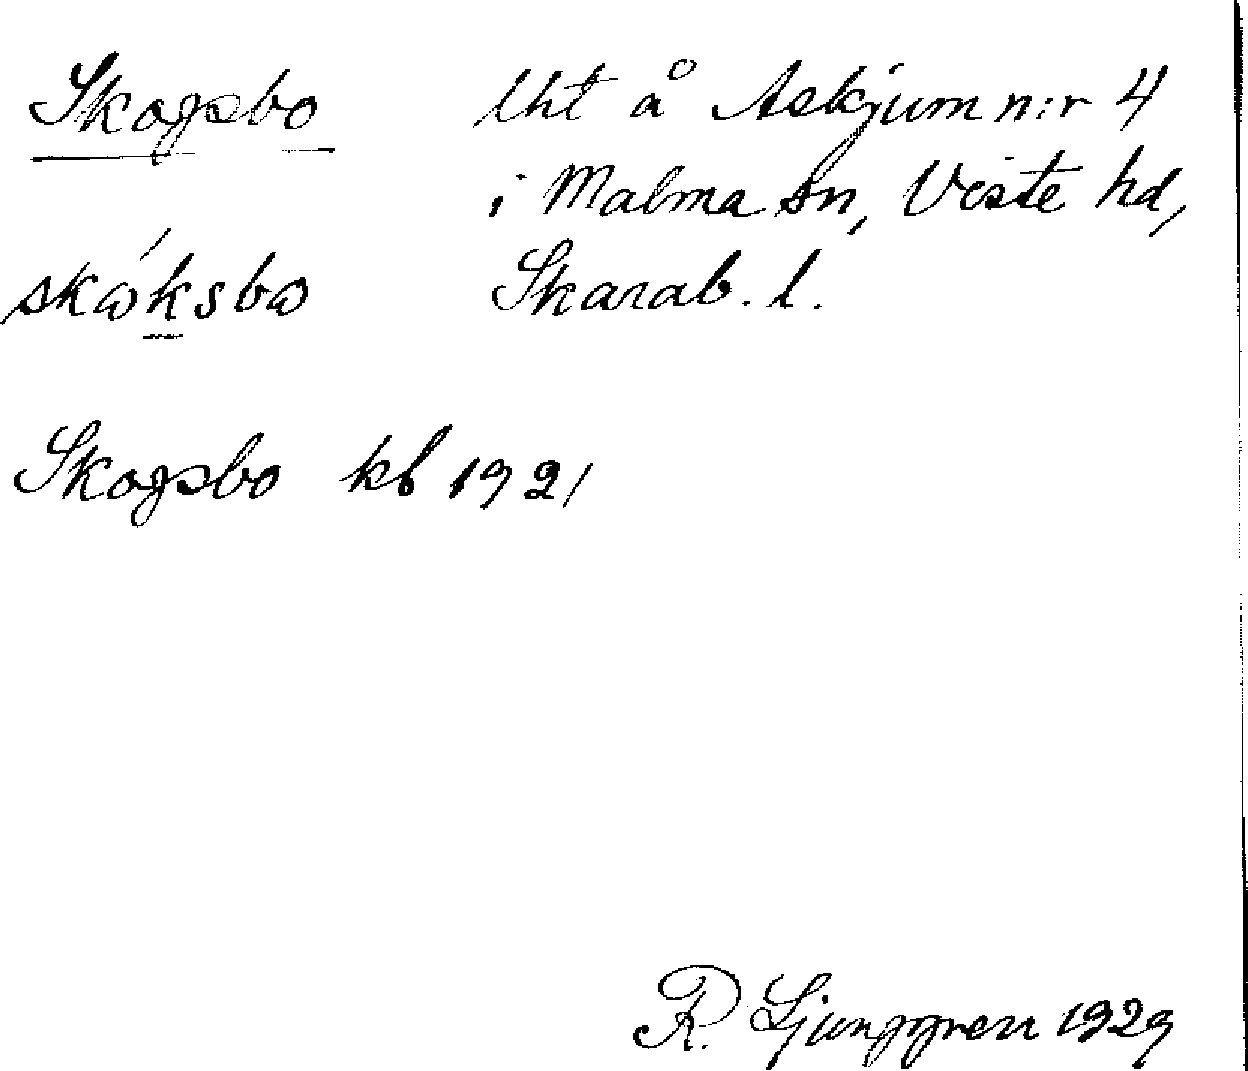 Skogsbo lht å Askjum n:r 4
i Malma sn, Viste hd,
skω´ksbω Skarab. l.
Skogsbo kb 1921
R. Ljunggren 1929